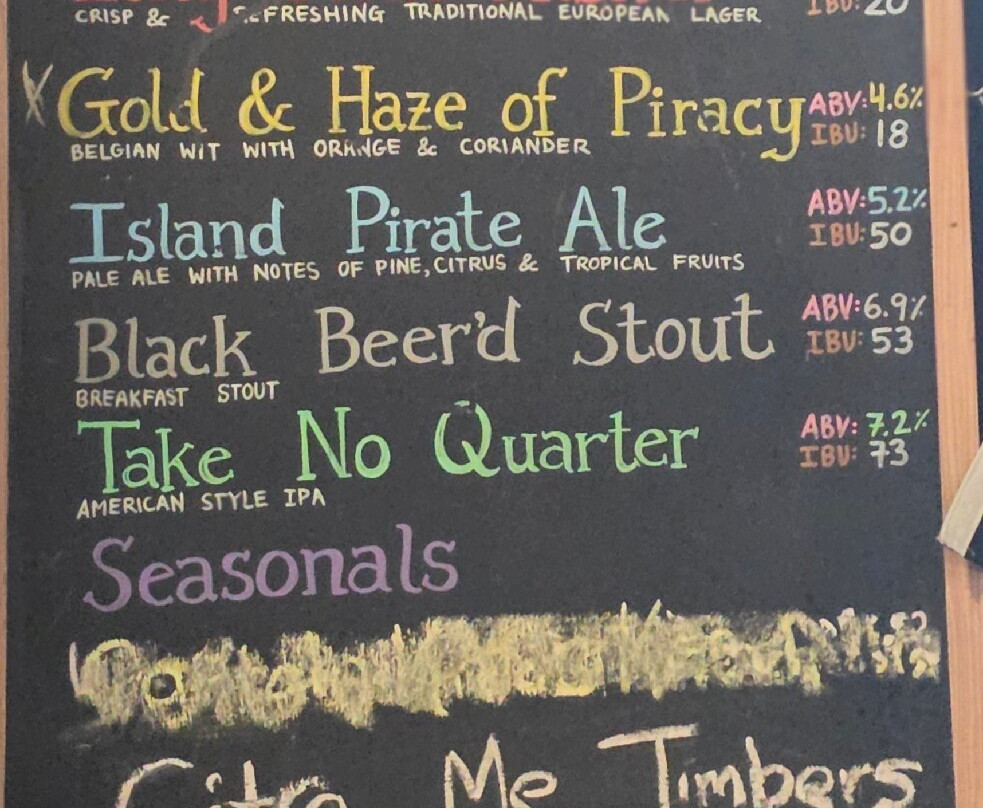 CRISP & REFRESHING TRADITIONAL EUROPEAN LAGER IBU: 20
X Gold & Haze of Piracy ABV: 4.6%
BELGIAN WIT WITH ORANGE & CORIANDER IBU: 18
Island Pirate Ale ABV: 5.2%
IBU: 50
PALE ALE WITH NOTES OF PINE, CITRUS & TROPICAL FRUITS
Black Beer'd Stout ABV: 6.9%
IBU: 53
BREAKFAST STOUT
Take No Quarter ABV: 7.2%
IBU: 73
AMERICAN STYLE IPA
Seasonals
Citra Me Timbers